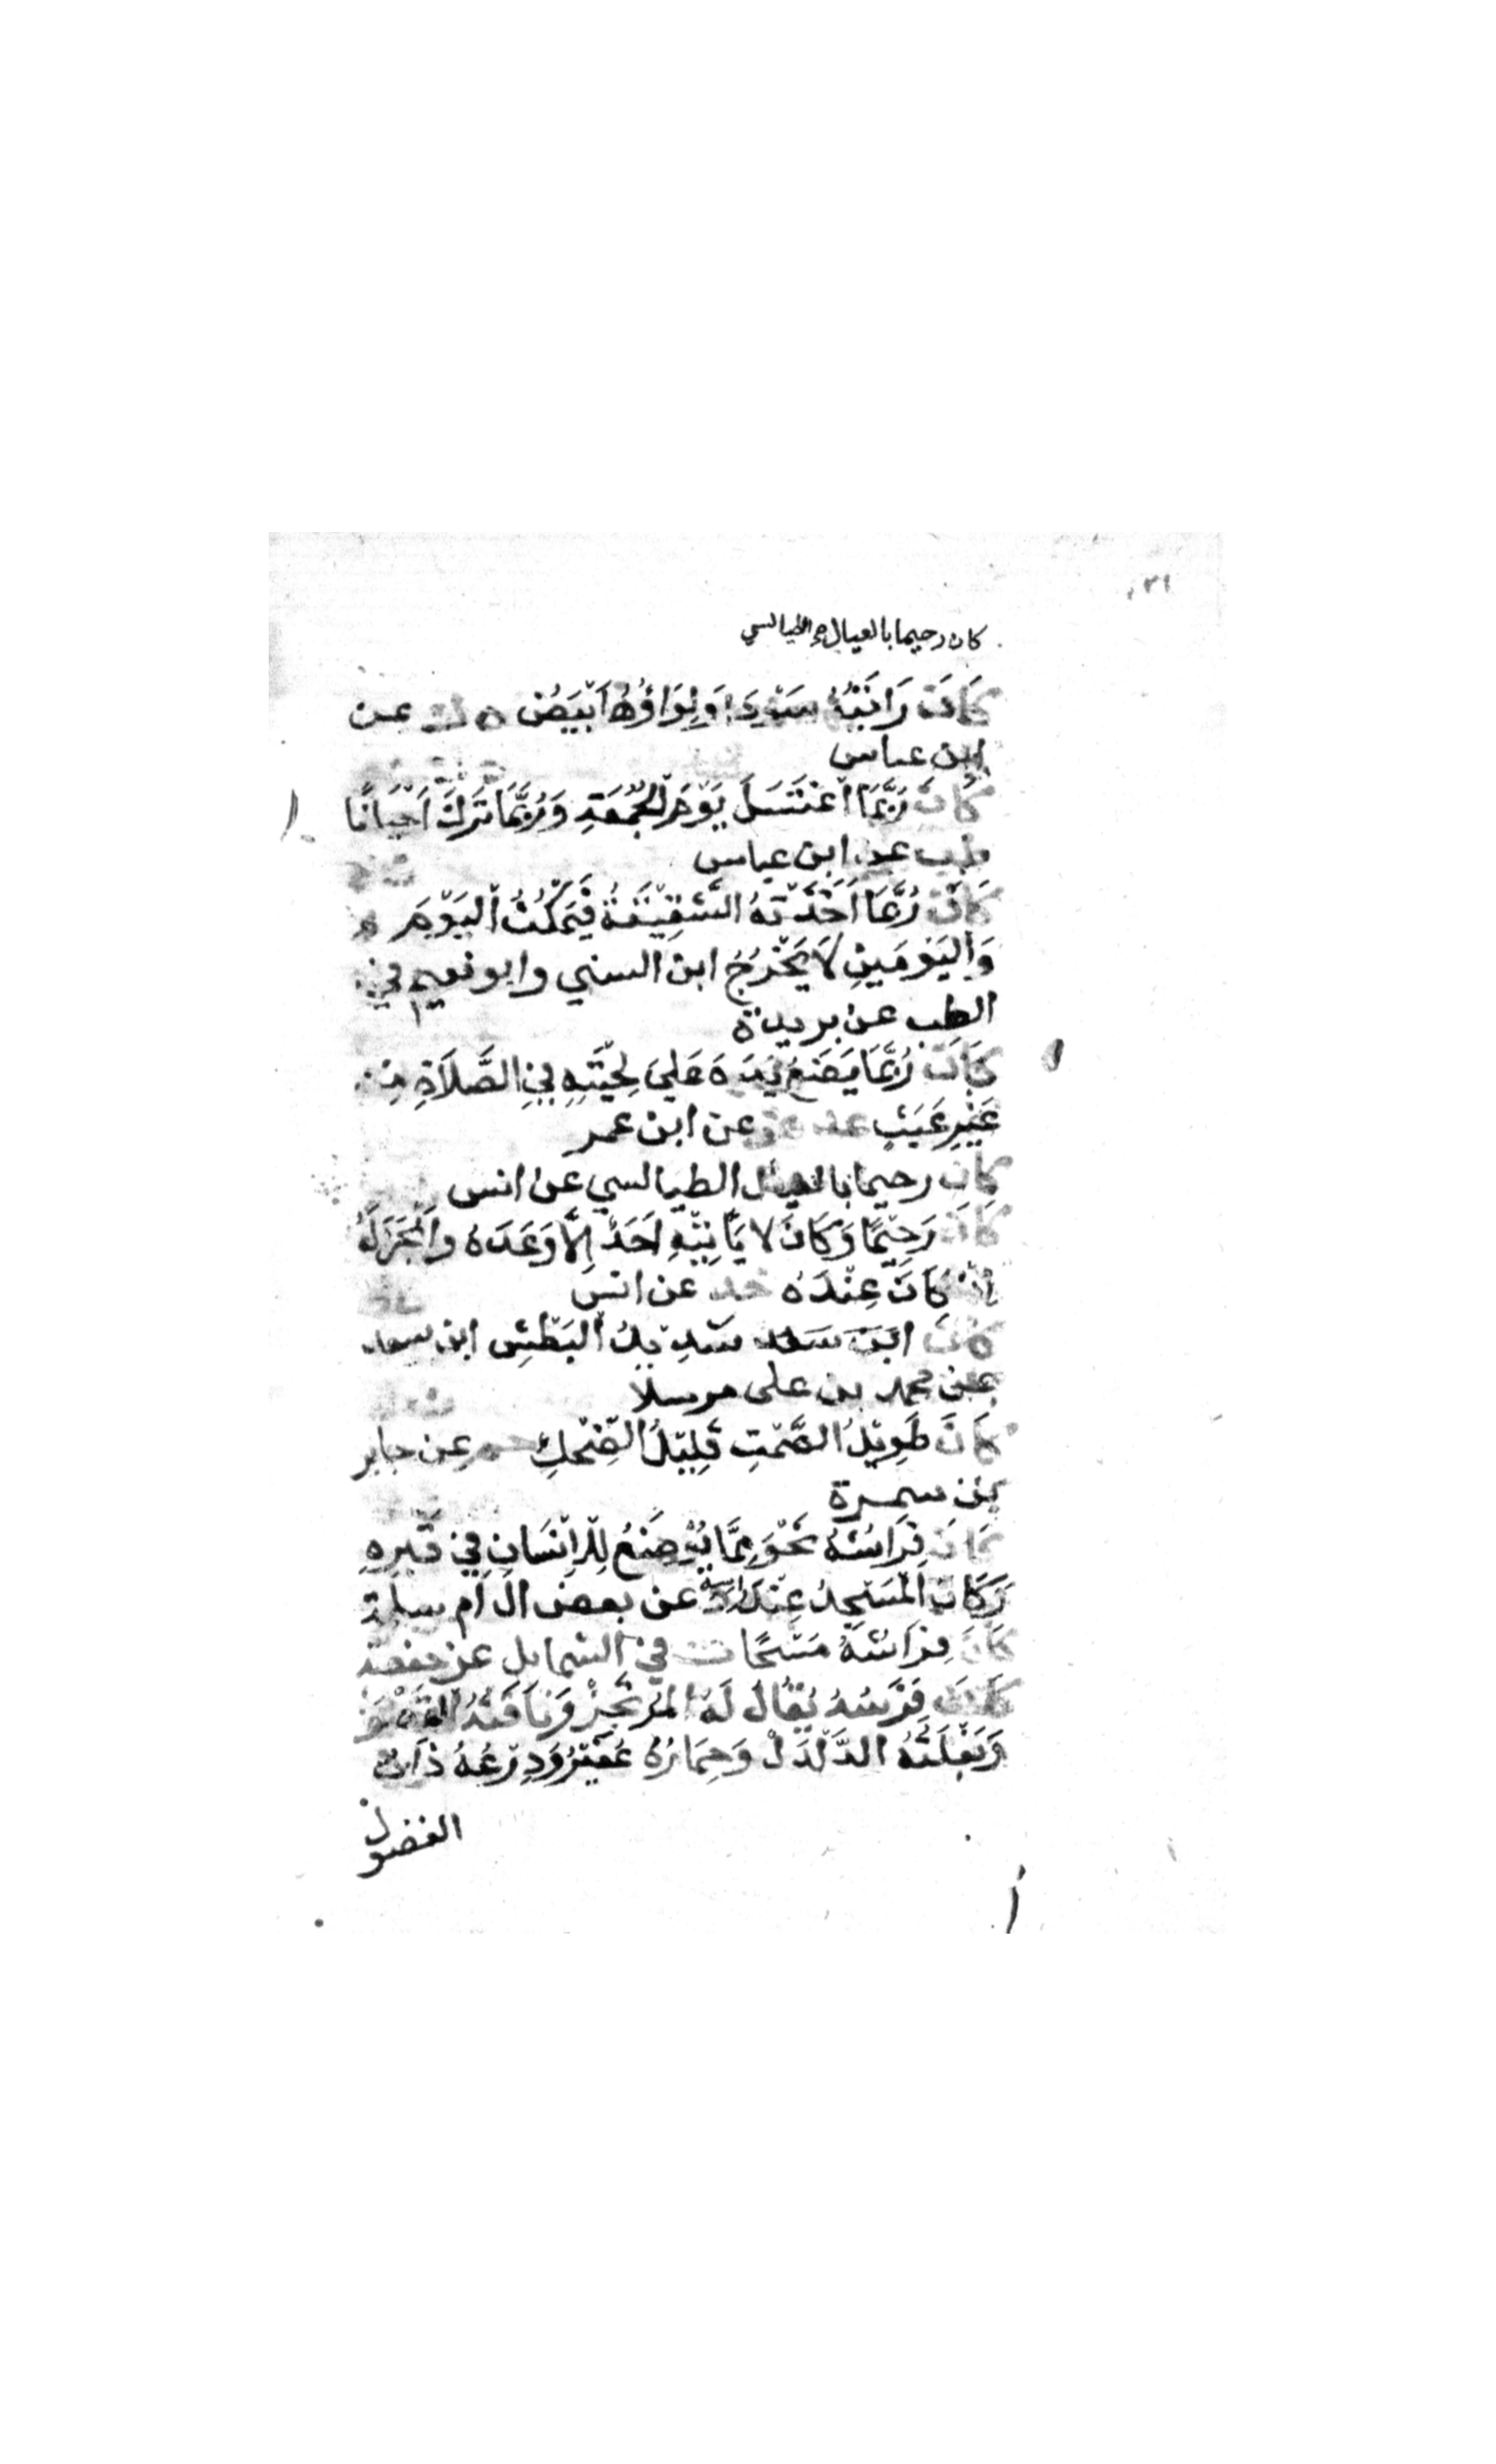 ٣١
كان رحيما بالعيال الطيالسي
كَانَتْ رَايَتُهُ سَوْدَا وَلِوَاؤُهُ اَبْيَضُ ه ك عن
ابن عباس
كَانَ رُبَّمَا اغْتَسَلَ يَوْمَ الْجُمُعَةِ وَرُبَّمَا تَرَكَ اَحْيَانًا
طب عن ابن عباس
كَانَ رُبَّمَا اَخَذَتْهُ الشَّقِيْقَةُ فَيَمْكُثُ الْيَوْمَ
وَالْيَوْمَيْنِ لَا يَخْرُجُ ابن السني وابو نعيم في
الطب عن بريدة
كَانَ رُبَّمَا يَضَعُ يَدَهُ عَلَى لِحْيَتِهِ فِي الصَّلَاةِ مِنْ
غَيْرِ عَبَثٍ عد عن ابن عمر
كان رحيما بالعيال الطيالسي عن انس
كَانَ رَحِيْمًا وَكَانَ لَا يَأْتِيْهِ اَحَدٌ اِلَّا وَعَدَهُ وَاَنْجَزَ لَهُ
اِنْ كَانَ عِنْدَهُ خد عن انس
كَانَ شَدِيْدُ الْبَطْشِ ابن سعد
عن محمد بن على مرسلا
كَانَ طَوِيْلُ الصَّمْتِ قَلِيْلُ الضِّحْكِ حم عن جابر
بن سمرة
كَانَ فِرَاشُهُ نَحْوَ مِمَّا يُوْضَعُ لِلْاِنْسَانِ فِي قَبْرِهِ
وَكَانَ الْمَسْجِدُ عِنْدَ عن بعض ال ام سلمة
كَانَ فِرَاشُهُ مَسْحًا ت في الشمايل عن حفصة
كَانَ فَرَسُهُ يُقَالُ لَهُ الْمُرْتَجِزُ وَنَاقَتُهُ الْقَصْوَى
وَبَغْلَتُهُ الدُّلْدُلُ وَحِمَارُهُ عُفَيْرُ وَدِرْعُهُ ذَات
الفضول